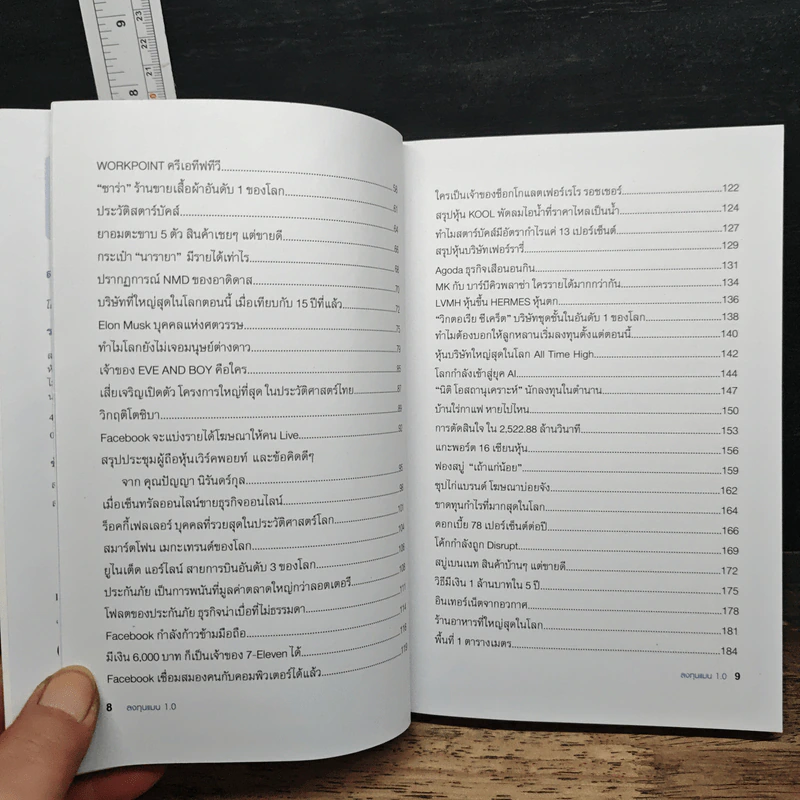 WORKPOINT ครีเอทีฟทีวี 56
"ซาร่า" ร้านขายเสื้อผ้าอันดับ 1 ของโลก 61
ประวัติสตาร์บัคส์ 64
ยาอมตะขาบ 5 ตัว สินค้าเชยๆ แต่ขายดี 66
กระเป๋า "นารายา" มีรายได้เท่าไร 68
ปรากฏการณ์ NMD ของอาดิดาส 70
บริษัทที่ใหญ่สุดในโลกตอนนี้ เมื่อเทียบกับ 15 ปีที่แล้ว 72
Elon Musk บุคคลแห่งศตวรรษ 75
ทำไมโลกยังไม่เจอมนุษย์ต่างดาว 79
เจ้าของ EVE AND BOY คือใคร 85
เสี่ยเจริญเปิดตัว โครงการใหญ่ที่สุด ในประวัติศาสตร์ไทย 87
วิกฤติโตชิบา 89
Facebook จะแบ่งรายได้โฆษณาให้คน Live 92
สรุปประชุมผู้ถือหุ้นเวิร์คพอยท์ และข้อคิดดีๆ
จาก คุณปัญญา นิรันดร์กุล 95
เมื่อเซ็นทรัลออนไลน์ขายธุรกิจออนไลน์ 98
ร็อคกี้เฟลเลอร์ บุคคลที่รวยสุดในประวัติศาสตร์โลก 101
สมาร์ตโฟน เมกะเทรนด์ของโลก 104
ยูไนเต็ด แอร์ไลน์ สายการบินอันดับ 3 ของโลก 106
ประกันภัย เป็นการพนันที่มูลค่าตลาดใหญ่กว่าลอตเตอรี่ 108
โฟลตของประกันภัย ธุรกิจน่าเบื่อที่ไม่ธรรมดา 111
Facebook กำลังก้าวข้ามมือถือ 114
มีเงิน 6,000 บาท ก็เป็นเจ้าของ 7-Eleven ได้ 116
Facebook เชื่อมสมองคนกับคอมพิวเตอร์ได้แล้ว 119
8 ลงทุนแมน 1.0
ใครเป็นเจ้าของช็อกโกแลตเฟอร์เรโร รอชเชอร์ 122
สรุปหุ้น KOOL พัดลมไอน้ำที่ราคาไหลเป็นน้ำ 124
ทำไมสตาร์บัคส์มีอัตรากำไรแค่ 13 เปอร์เซ็นต์ 127
สรุปหุ้นบริษัทเฟอร์รารี่ 129
Agoda ธุรกิจเสือนอนกิน 131
MK กับ บาร์บีคิวพลาซ่า ใครรายได้มากกว่ากัน 134
LVMH หุ้นขึ้น HERMES หุ้นตก 136
"วิกตอเรีย ซีเคร็ต" บริษัทชุดชั้นในอันดับ 1 ของโลก 138
ทำไมต้องบอกให้ลูกหลานเริ่มลงทุนตั้งแต่ตอนนี้ 140
หุ้นบริษัทใหญ่สุดในโลก All Time High 142
โลกกำลังเข้าสู่ยุค AI 144
"นิติ โอสถานุเคราะห์" นักลงทุนในตำนาน 147
บ้านไร่กาแฟ หายไปไหน 150
การตัดสินใจ ใน 2,522.88 ล้านวินาที 153
แกะพอร์ต 16 เซียนหุ้น 156
ฟองสบู่ "เถ้าแก่น้อย" 159
ซุปไก่แบรนด์ โฆษณาบ่อยจัง 162
ขาดทุนกำไรที่มากสุดในโลก 164
ดอกเบี้ย 78 เปอร์เซ็นต์ต่อปี 166
โค้กกำลังถูก Disrupt 169
สบู่เบนเนท สินค้าบ้านๆ แต่ขายดี 172
วิธีมีเงิน 1 ล้านบาทใน 5 ปี 175
อินเทอร์เน็ตจากอวกาศ 178
ร้านอาหารที่ใหญ่สุดในโลก 181
พื้นที่ 1 ตารางเมตร 184
ลงทุนแมน 1.0 9